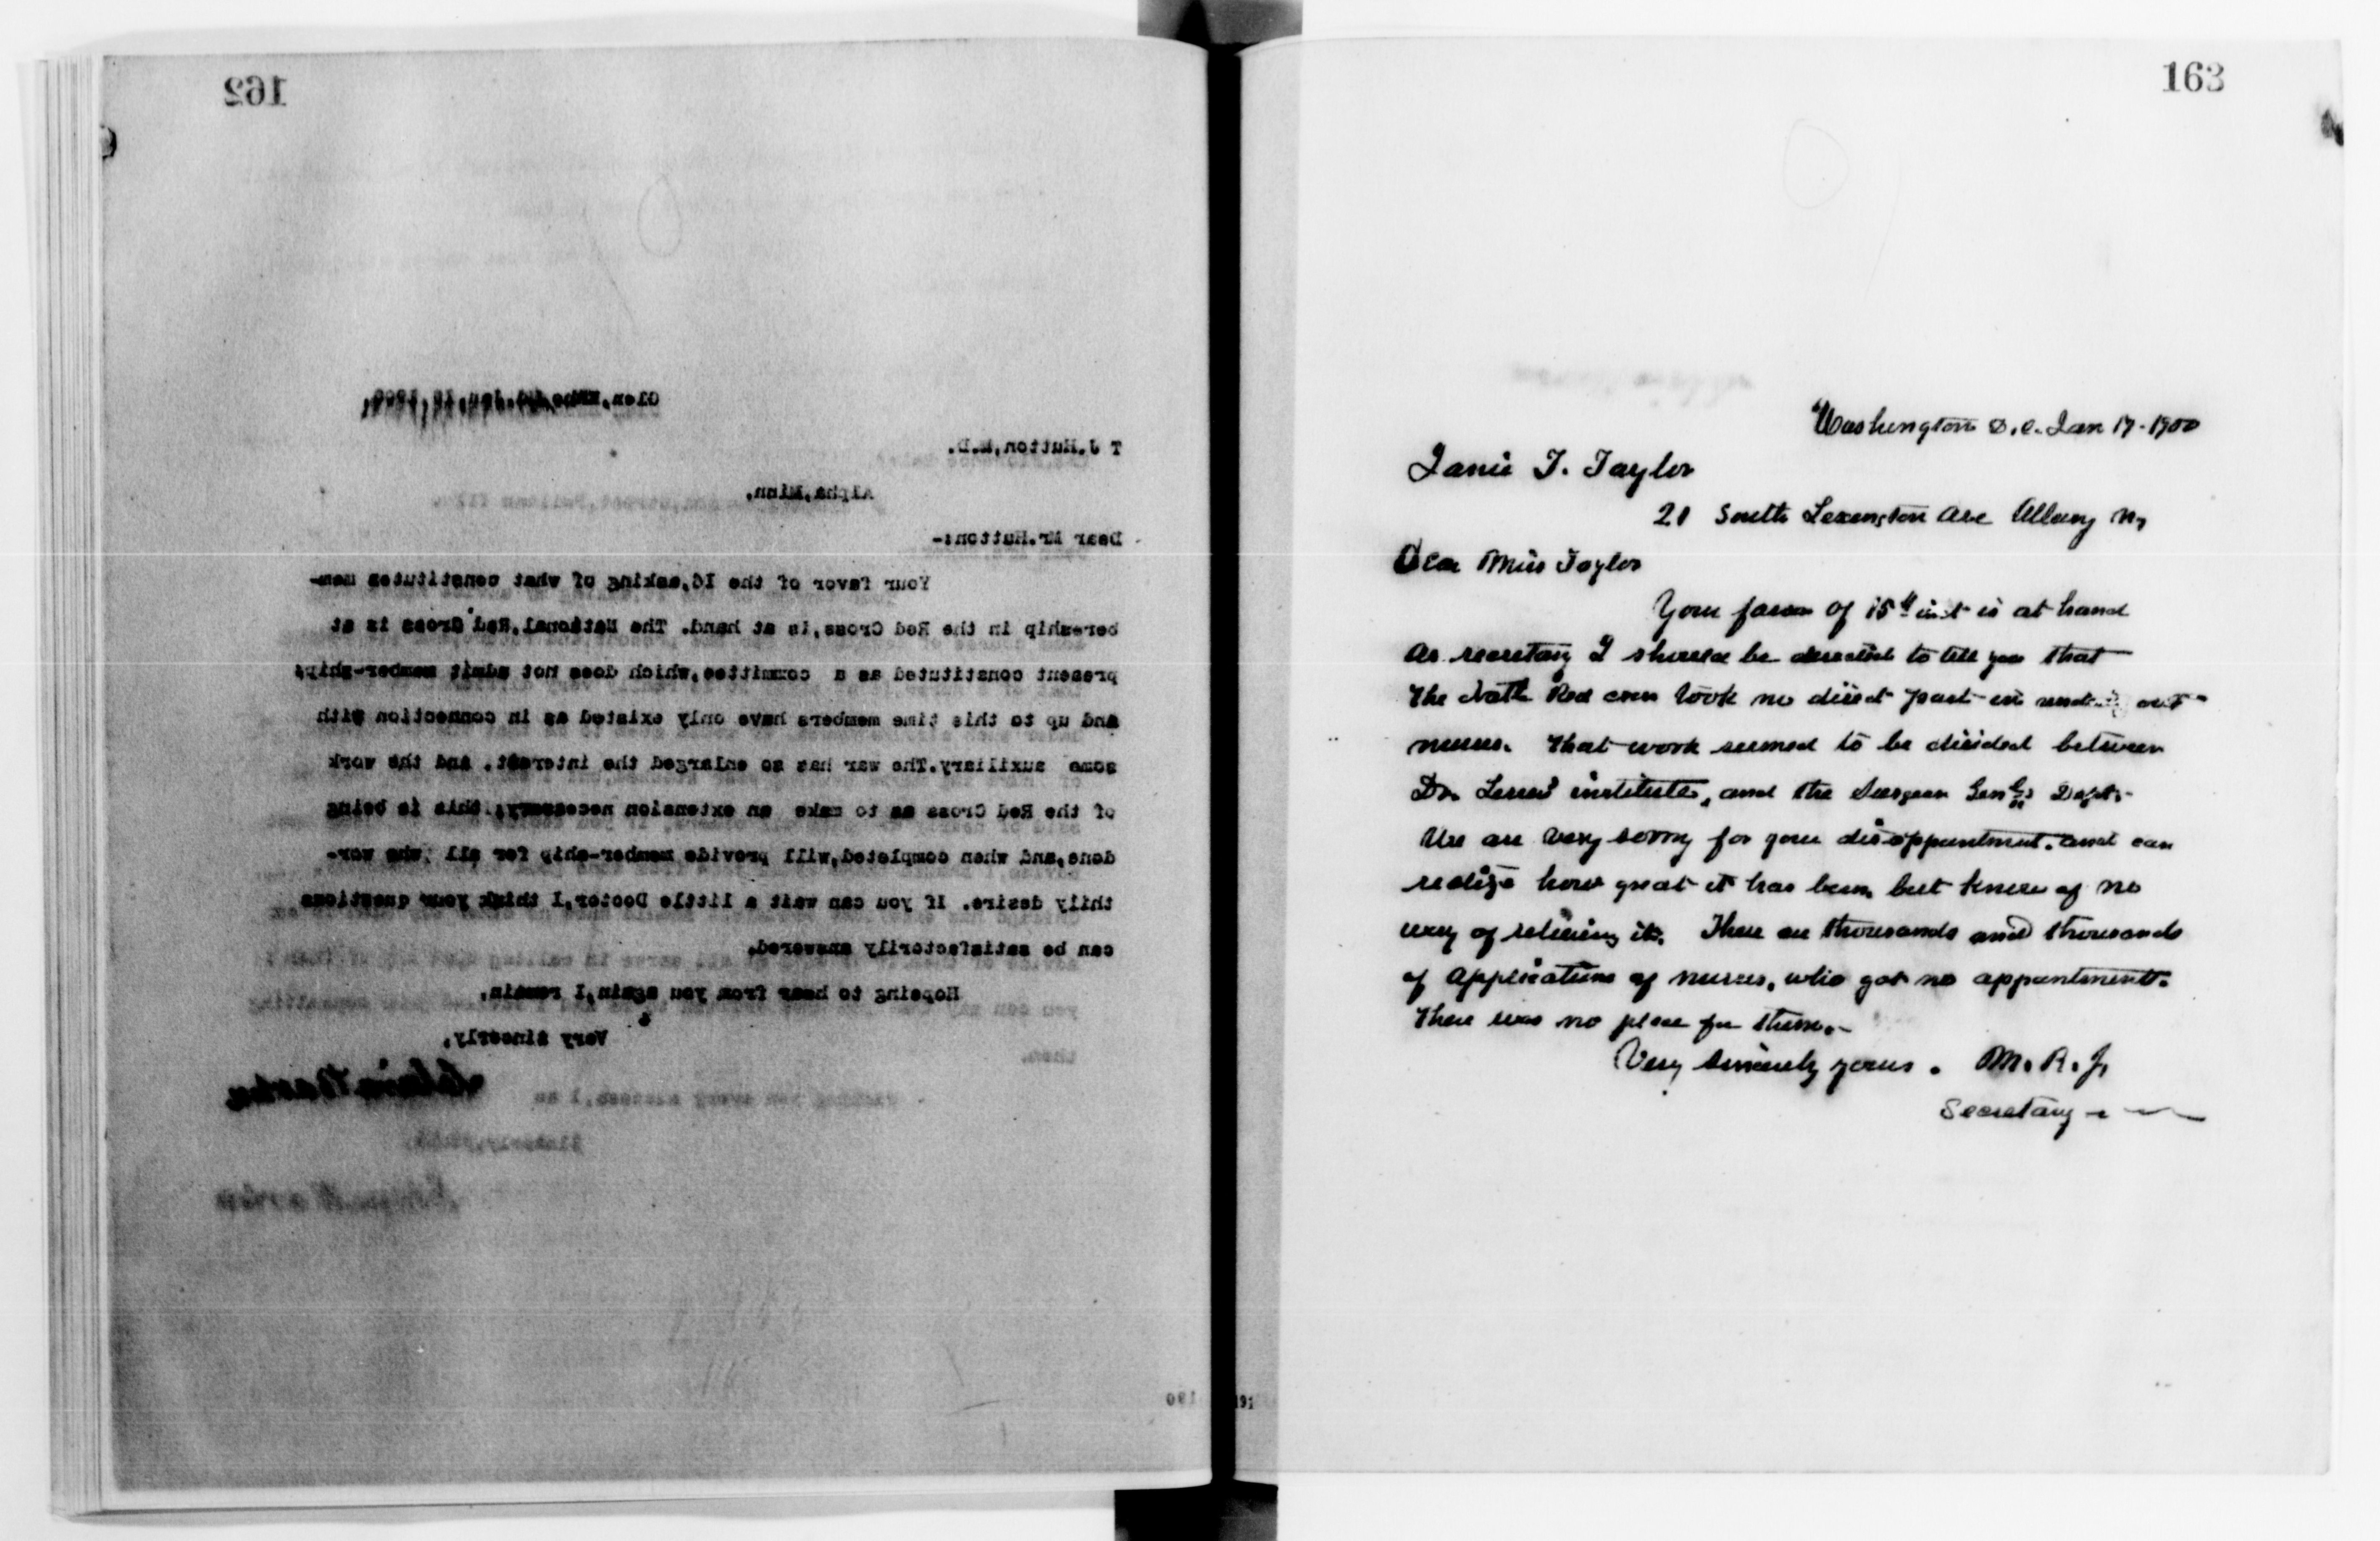 162
Glen,
T J.Hutton,M.D.
Alpha,Minn,
Dear Mr.Hutton:-
Your favor of the 16,asking of what constitutes mem-
bership in the Red Cross,is at hand. The National,Red Cross is at
present constituted as a committee,which does not admit member-ship;
and up to this time members have only existed as in connection with
some auxiliary.The war has so enlarged the interest, and the work
of the Red Cross as to make an extension necessary; this is being
done,and when completed,will provide member-ship for all who wor-
thily desire. If you can wait a little Doctor,I think your questions
can be satisfactorily answered.
Hopeing to hear from you again,I remain,
Very sincerly,
then.
wishing you every success,I am
190
163
Washington D.C. Jan 17-1900
Janie T. Taylor
21 South Lexington Ave Albany Ny
Dear Miss Taylor
Your favor of 15th inst is at hand
As secretary I should be directed to tell you that
the Natl Red Cross took no direct part in sending out
nurses. That work seemed to be divided between
Dr. institute, and the Surgeon Genl's Dept.
We are very sorry for your disappointment. and can
realize how great it has been, but know of no
way of relieving it. There are thousands and thousands
of applications of nurses, who got no appointment.
There was no place for them.-
Very sincerely yours. M. R. J,
Secretary
191